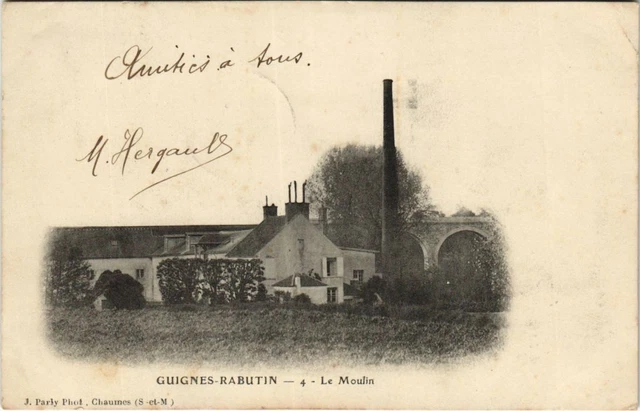 Amitiés à tous.
M. Hergault
GUIGNES-RABUTIN — 4 - Le Moulin
J. Parly Phot., Chaumes (S-et-M)